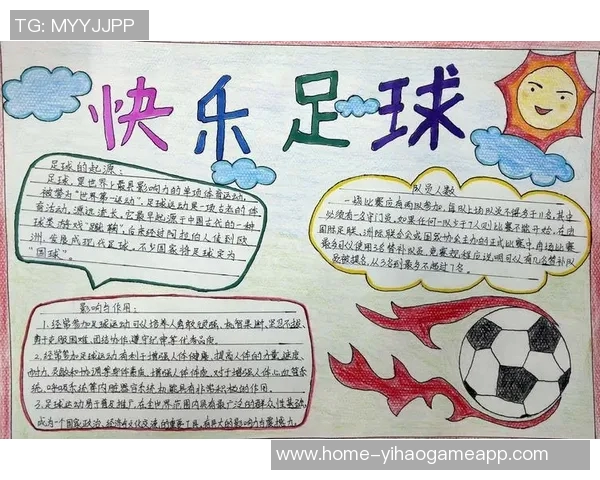 TG: MYYJJPP
快乐足球
足球的起源：
足球，是世界上最具影响力的单项体育运动，
被誉为“世界第一运动”，足球运动是一项古老的体
育活动，源远流长，它最早起源于中国古代的一种
球类游戏“蹴鞠”，后来经过阿拉伯人传到欧
洲，发展成现代足球。不少国家将足球定为
“国球”。
队员人数
一场比赛应有两队参加，每队上场队员不得多于11名，其中
必须有一名守门员。如果任何一队少于7人则比赛不能开始。在由
国际足联、洲际联合会或国家协会主办的正式比赛中，每场比赛
最多可以使用3名替补队员。竞赛规程应说明可以有几名替补队
员被提名，从3名到最多不超过7名。
影响与作用：
1.经常参加足球运动可以培养人勇敢顽强、机智果断、坚忍不拔、
勇于克服困难、团结协作、遵守纪律等优秀品质。
2.经常参加足球运动有利于增强人体健康，提高人体的力量、速度、
耐力、灵敏和协调等身体素质，增强人体体质，对于增强人体心血管系
统、呼吸系统等内脏器官系统机能具有非常积极的作用。
3.足球运动易于普及推广，在全世界范围内具有最广泛的群众性基础，
成为一个国家政治、经济与文化交流的重要工具，有其大的影响力与震撼力。
www.home-yihaogameapp.com